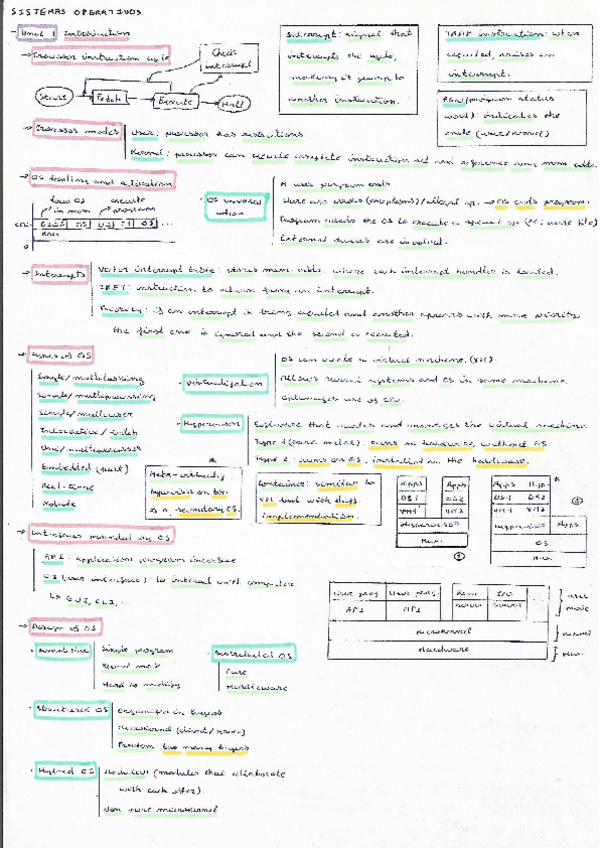 SISTEMAS OPERATIVOS
Unit 1 Introduction
→ Processor instruction cycle
Check
interrupt
Start
Fetch
Execute
Halt
Interrupt: signal that
interrupts the cycle,
making it jump to
another instruction.
TRAP instruction: when
executed, raises an
interrupt.
PSW (program status
word): indicates the
mode (user/kernel)
→ Processor modes
User: processor has restrictions.
Kernel: processor can execute complete instruction set and reference any mem. addr.
→ OS booting and activation
load OS
in mem
execute
programs
CPU
OS
OS
...
· OS invoked
when
A user program ends
There are errors (exceptions)/illegal op. → OS ends program.
Program needs the OS to execute a special op
External devices are involved.
→ Interrupts
Vector interrupt table: stores mem. addr. where each interrupt handler is located.
IRET: instruction to return from an interrupt.
Priority: if an interrupt is being executed and another appears with more priority,
the first one is ignored and the second is executed.
→ Types of OS
Single/multitasking
Single/multiprocessing
Single/multiuser
Interactive/batch
Uni/multiprocessor
Embedded
Real-time
Mobile
· Virtualization
OS can create a virtual machine. (VM).
Allows several systems and OS in same machine.
Optimizes use of CPU.
· Hypervisor
Software that creates and manages the virtual machine.
Type 1 (bare metal): runs on hardware, without OS.
Type 2: runs on OS, installed on the hardware.
*
hypervisor on
is a secondary OS.
Container: similar to
VM but with diff.
implementation.
Apps
Apps
OS1
OS2
VM1
VM2
Hypervisor
Hw.
①
Apps
Apps
OS1
OS2
VM1
VM2
Hypervisor
Apps
OS
Hw.
②
→ Interfaces provided by OS
API: application program interface
UI (user interface): to interact with computer
↳ GUI, CLI, ...
User prog
User prog
API
API
server
server
Microkernel
Hardware
user
mode
kernel
Hw.
→ Design of OS
· Monolithic
Simple program
Kernel mode
Hard to modify
· Distributed OS
Pure
Middleware
· Structured OS
Organized in layers
Microkernel (client/server)
Problem: too many layers
· Hybrid OS
Modular (modules that collaborate
with each other)
Non pure microkernel